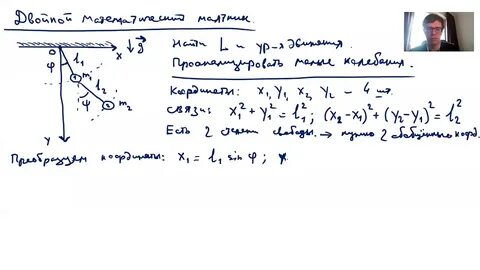 Двойной математический маятник.
Найти L и ур-я движения.
Проанализировать малые колебания.
Координаты: x₁, y₁, x₂, y₂ - 4 шт.
Связи: x₁² + y₁² = l₁²; (x₂ - x₁)² + (y₂ - y₁)² = l₂²
Есть 2 степени свободы. → нужно 2 обобщённые коорд.
Преобразуем координаты: x₁ = l₁ sin φ;
0
x
g
φ
l₁
m₁
l₂
φ
m₂
y